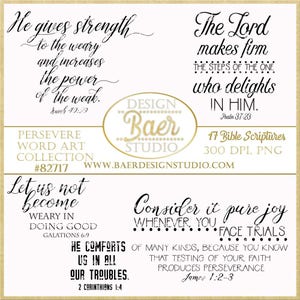 He gives strength
to the weary
and increases
the power
of the weak.
Isaiah 40:29
The Lord
makes firm
THE STEPS OF THE ONE
who delights
IN HIM.
Psalm 37:23
PERSEVERE
WORD ART
COLLECTION
#82717
DESIGN
Baer
STUDIO
17 Bible Scriptures
300 DPI, PNG
WWW.BAERDESIGNSTUDIO.COM
Let us not
become
WEARY IN
DOING GOOD
GALATIONS 6:9
HE COMFORTS
US IN ALL
OUR TROUBLES.
2 CORINTHIANS 1:4
Consider it pure joy
WHENEVER YOU
FACE TRIALS
OF MANY KINDS, BECAUSE YOU KNOW
THAT TESTING OF YOUR FAITH
PRODUCES PERSEVERANCE
James 1:2-3